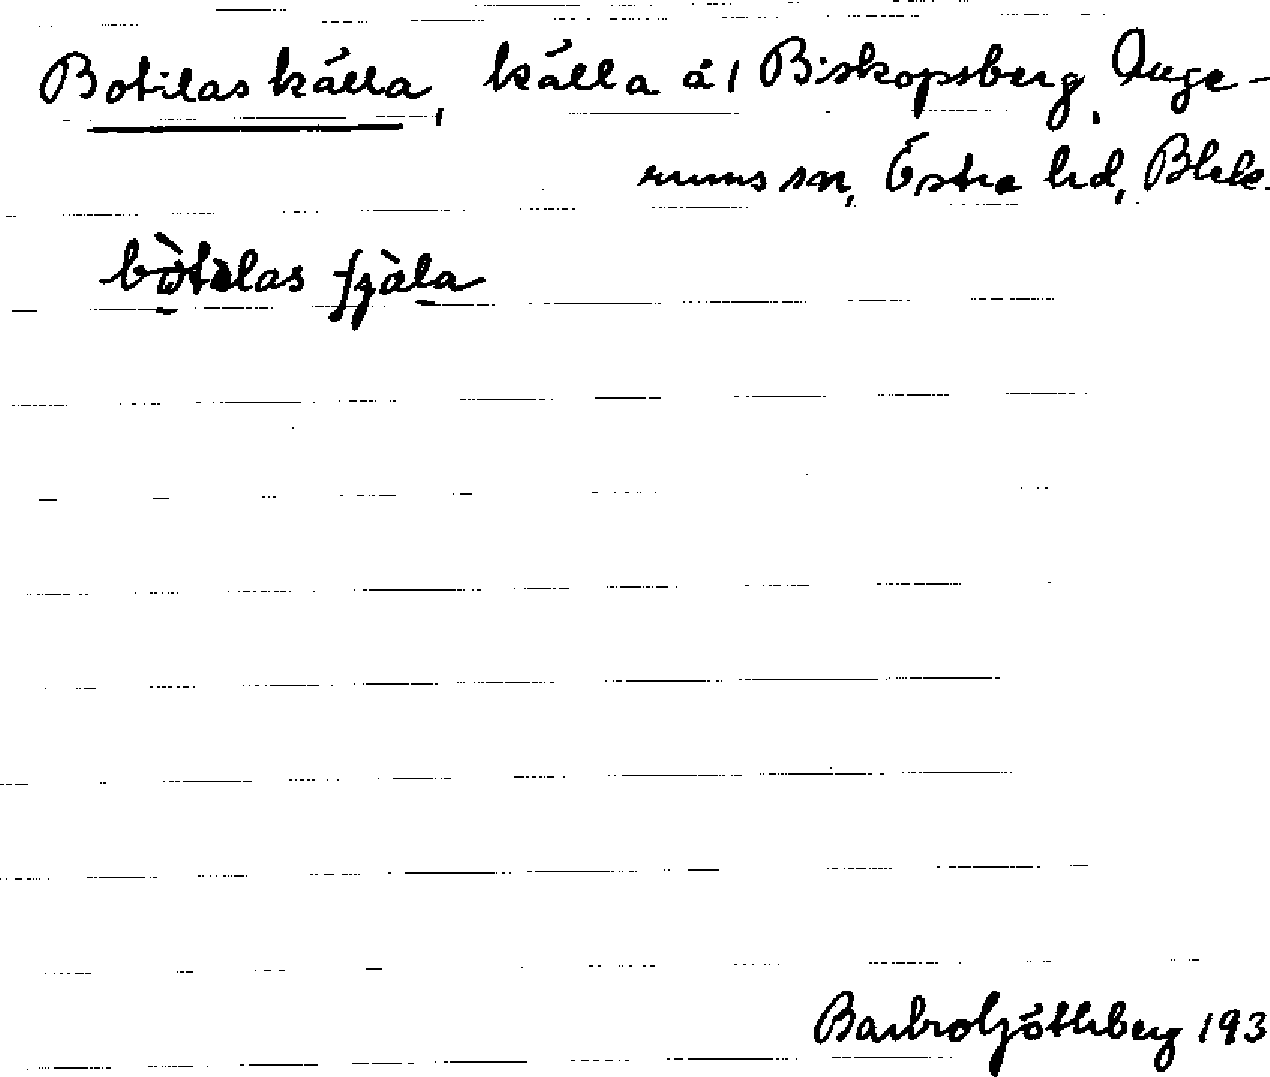 Botilas källa, källa å 1 Biskopsberg, Auge-
rums sn, Östra hd, Blek.
bòtilas
Barbro Götheberg 193